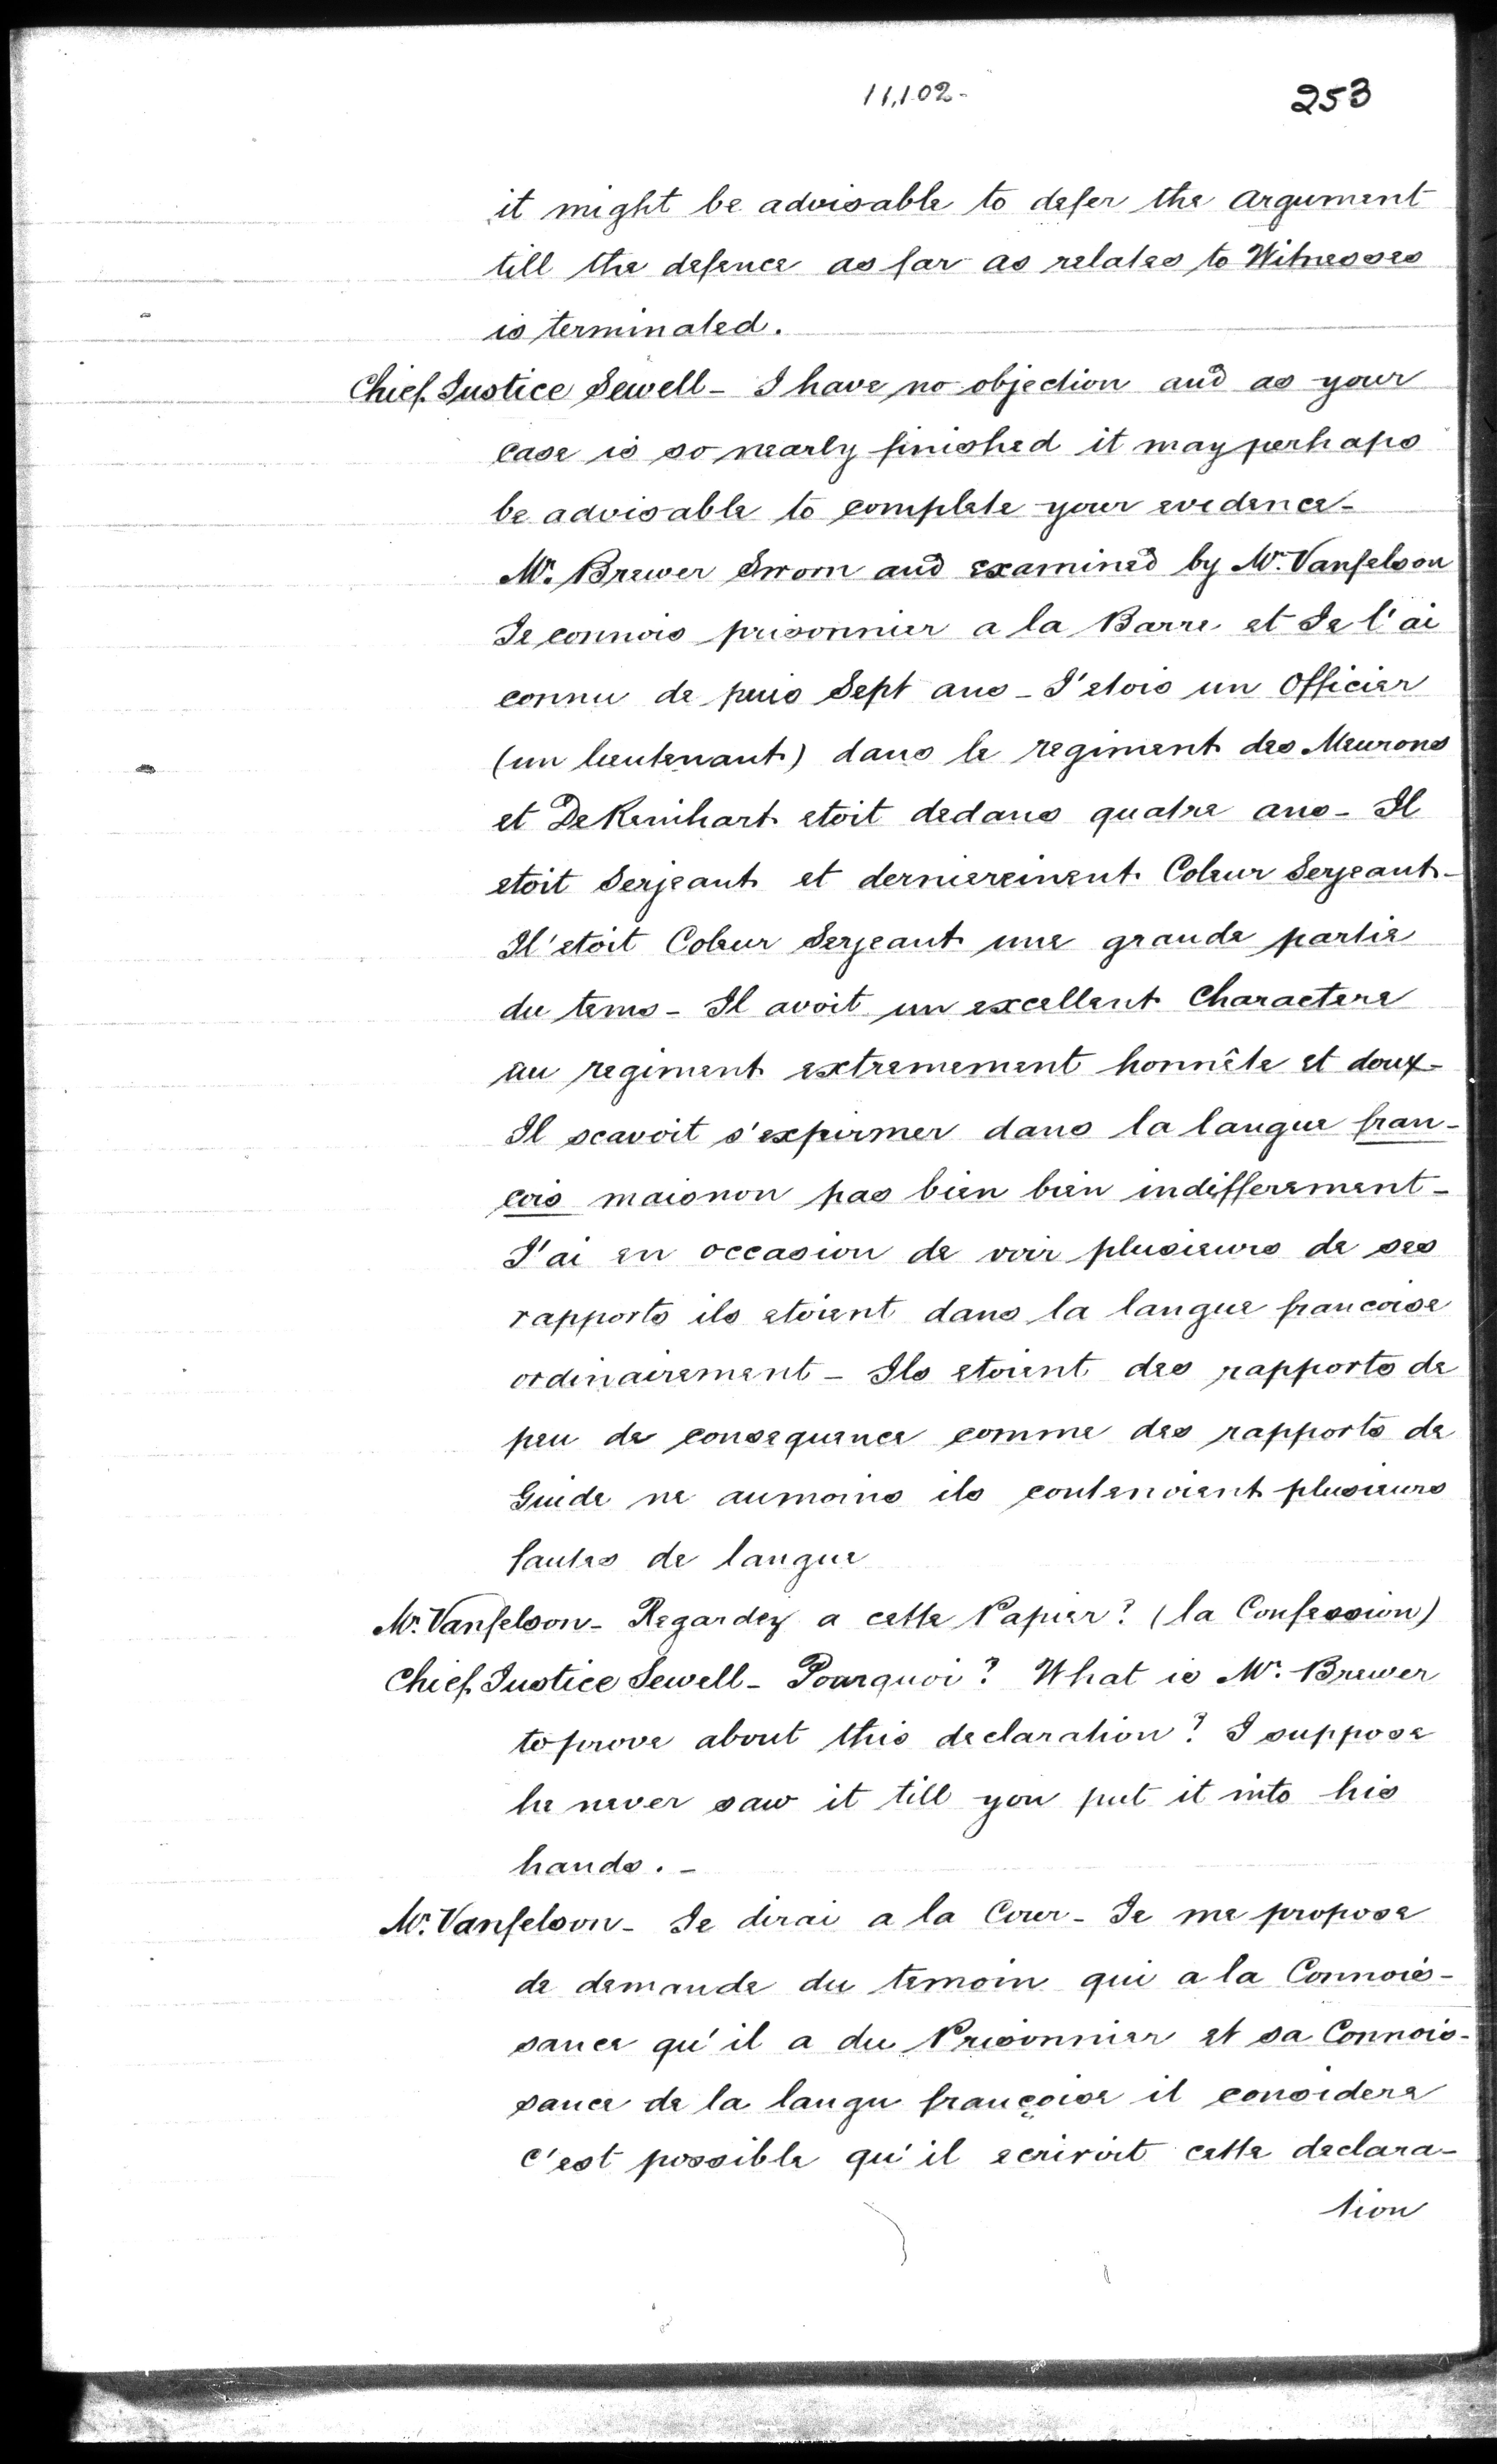 11,102- 253
it might be advisable to defer the argument
till the defence as far as relates to Witnesses
is terminated.
Chief Justice Sewell- I have no objection and as your
case is so nearly finished it may perhaps
be advisable to complete your evedence-
Mr. Brewer Sworn and examined by Mr. Vanfelson
Je connois prisonnier a la Barre et Je l'ai
connu de puis Sept ans- J'etois un Officier
(un lieutenant) dans le regiment des Meurons
et De Reinhart etoit dedans quatre ans- Il
etoit Serjeant et dernierement Coleur Serjeant-
Il'etoit Coleur Serjeant une grande partie
du tems- Il avoit un excellent Charactere
au regiment extremement honnête et doux-
Il scavoit s'expirmer dans la langue fran-
cois maisnon pas bien bien indifferement-
J'ai en occasion de voir plusieurs de ses
rapports ils etoient dans la langue francoise
ordinairement- Ils etoient des rapports de
peu de consequence comme des rapports de
Guide ne aumoins ils contenoient plusieurs
fautes de langue
Mr. Vanfelson- Regardez a cette Papier? (la Confession)
Chief Justice Sewell- Pourquoi? What is Mr. Brewer
to prove about this declaration? I suppose
he never saw it till you put it into his
hands.-
Mr. Vanfelson- Je dirai a la Cour- Je me propose
de demande du temoin qui a la Connois-
sance qu'il a du Prisonnier et sa Connois-
sance de la langu françoise il considere
c'est possible qu'il ecrivoit cette declara-
tion